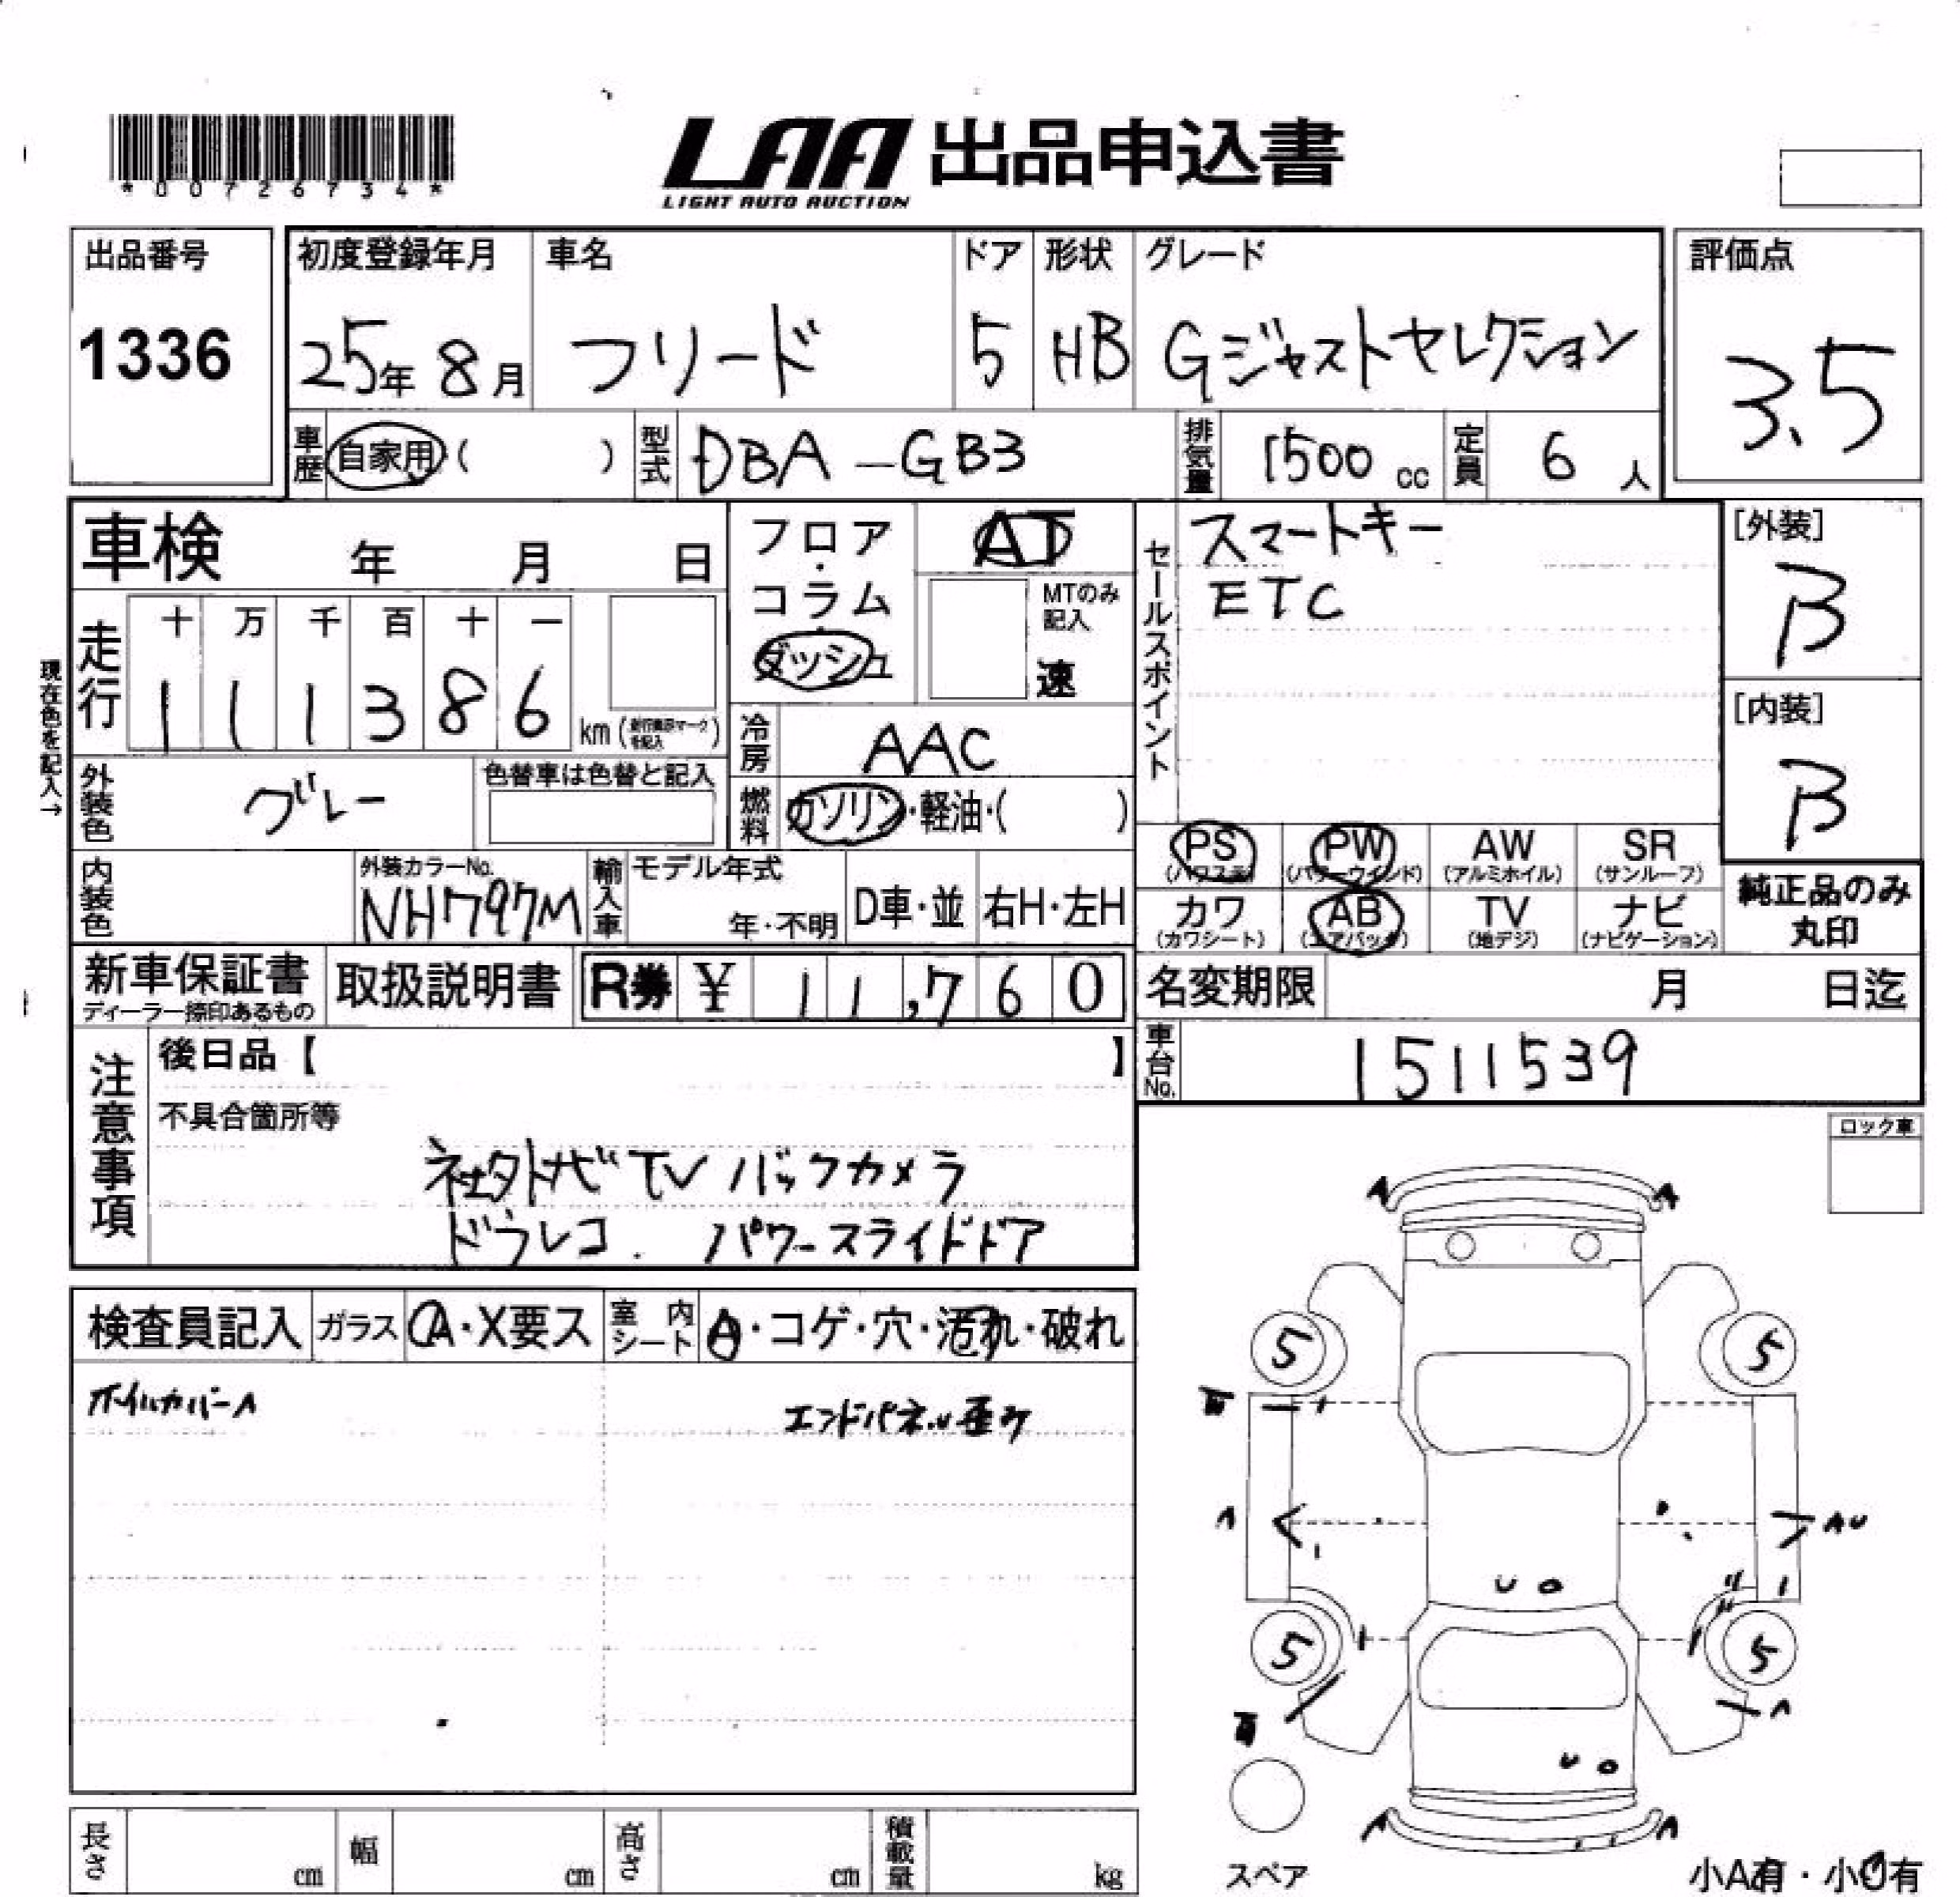 *00726734*
LAA 出品申込書
LIGHT AUTO AUCTION
出品番号 初度登録年月 車名 ドア 形状 グレード 評価点
1336 25年 8月 フリード 5 HB Gジャストセレクション 3.5
車歴 自家用 ( ) 型式 DBA-GB3 排気量 1500 cc 定員 6 人
車検 年 月 日
フロア・コラム・ダッシュ
AT
MTのみ記入
速
セールスポイント
スマートキー
ETC
[外装]
B
[内装]
B
現在色を記入→
走行 十 万 千 百 十 一
1 1 1 3 8 6 km
冷房 AAC
外装色 グレー 色替車は色替と記入
燃料 ガソリン・軽油・( )
PS PW AW SR
(パワステ) (パワーウインド) (アルミホイル) (サンルーフ)
カワ AB TV ナビ
(カワシート) (エアバック) (地デジ) (ナビゲーション)
純正品のみ
丸印
内装色 外装カラーNo. NH797M 輸入車 モデル年式 年・不明 D車・並 右H・左H
新車保証書 取扱説明書 R券 ¥ 11,760
ディーラー捺印あるもの
名変期限 月 日迄
車台No. 1511539
注意事項
後日品【 】
不具合箇所等
社外ナビ TV バックカメラ
ドラレコ. パワースライドドア
ロック車
検査員記入 ガラス A・X要ス 室内シート A・コゲ・穴・汚れ・破れ
ホイルカバーA エンドパネル歪み
A A
5 5
A AU
U
5 5
A
U
A A
スペア
小A有・小U有
長さ cm 幅 cm 高さ cm 積載量 kg